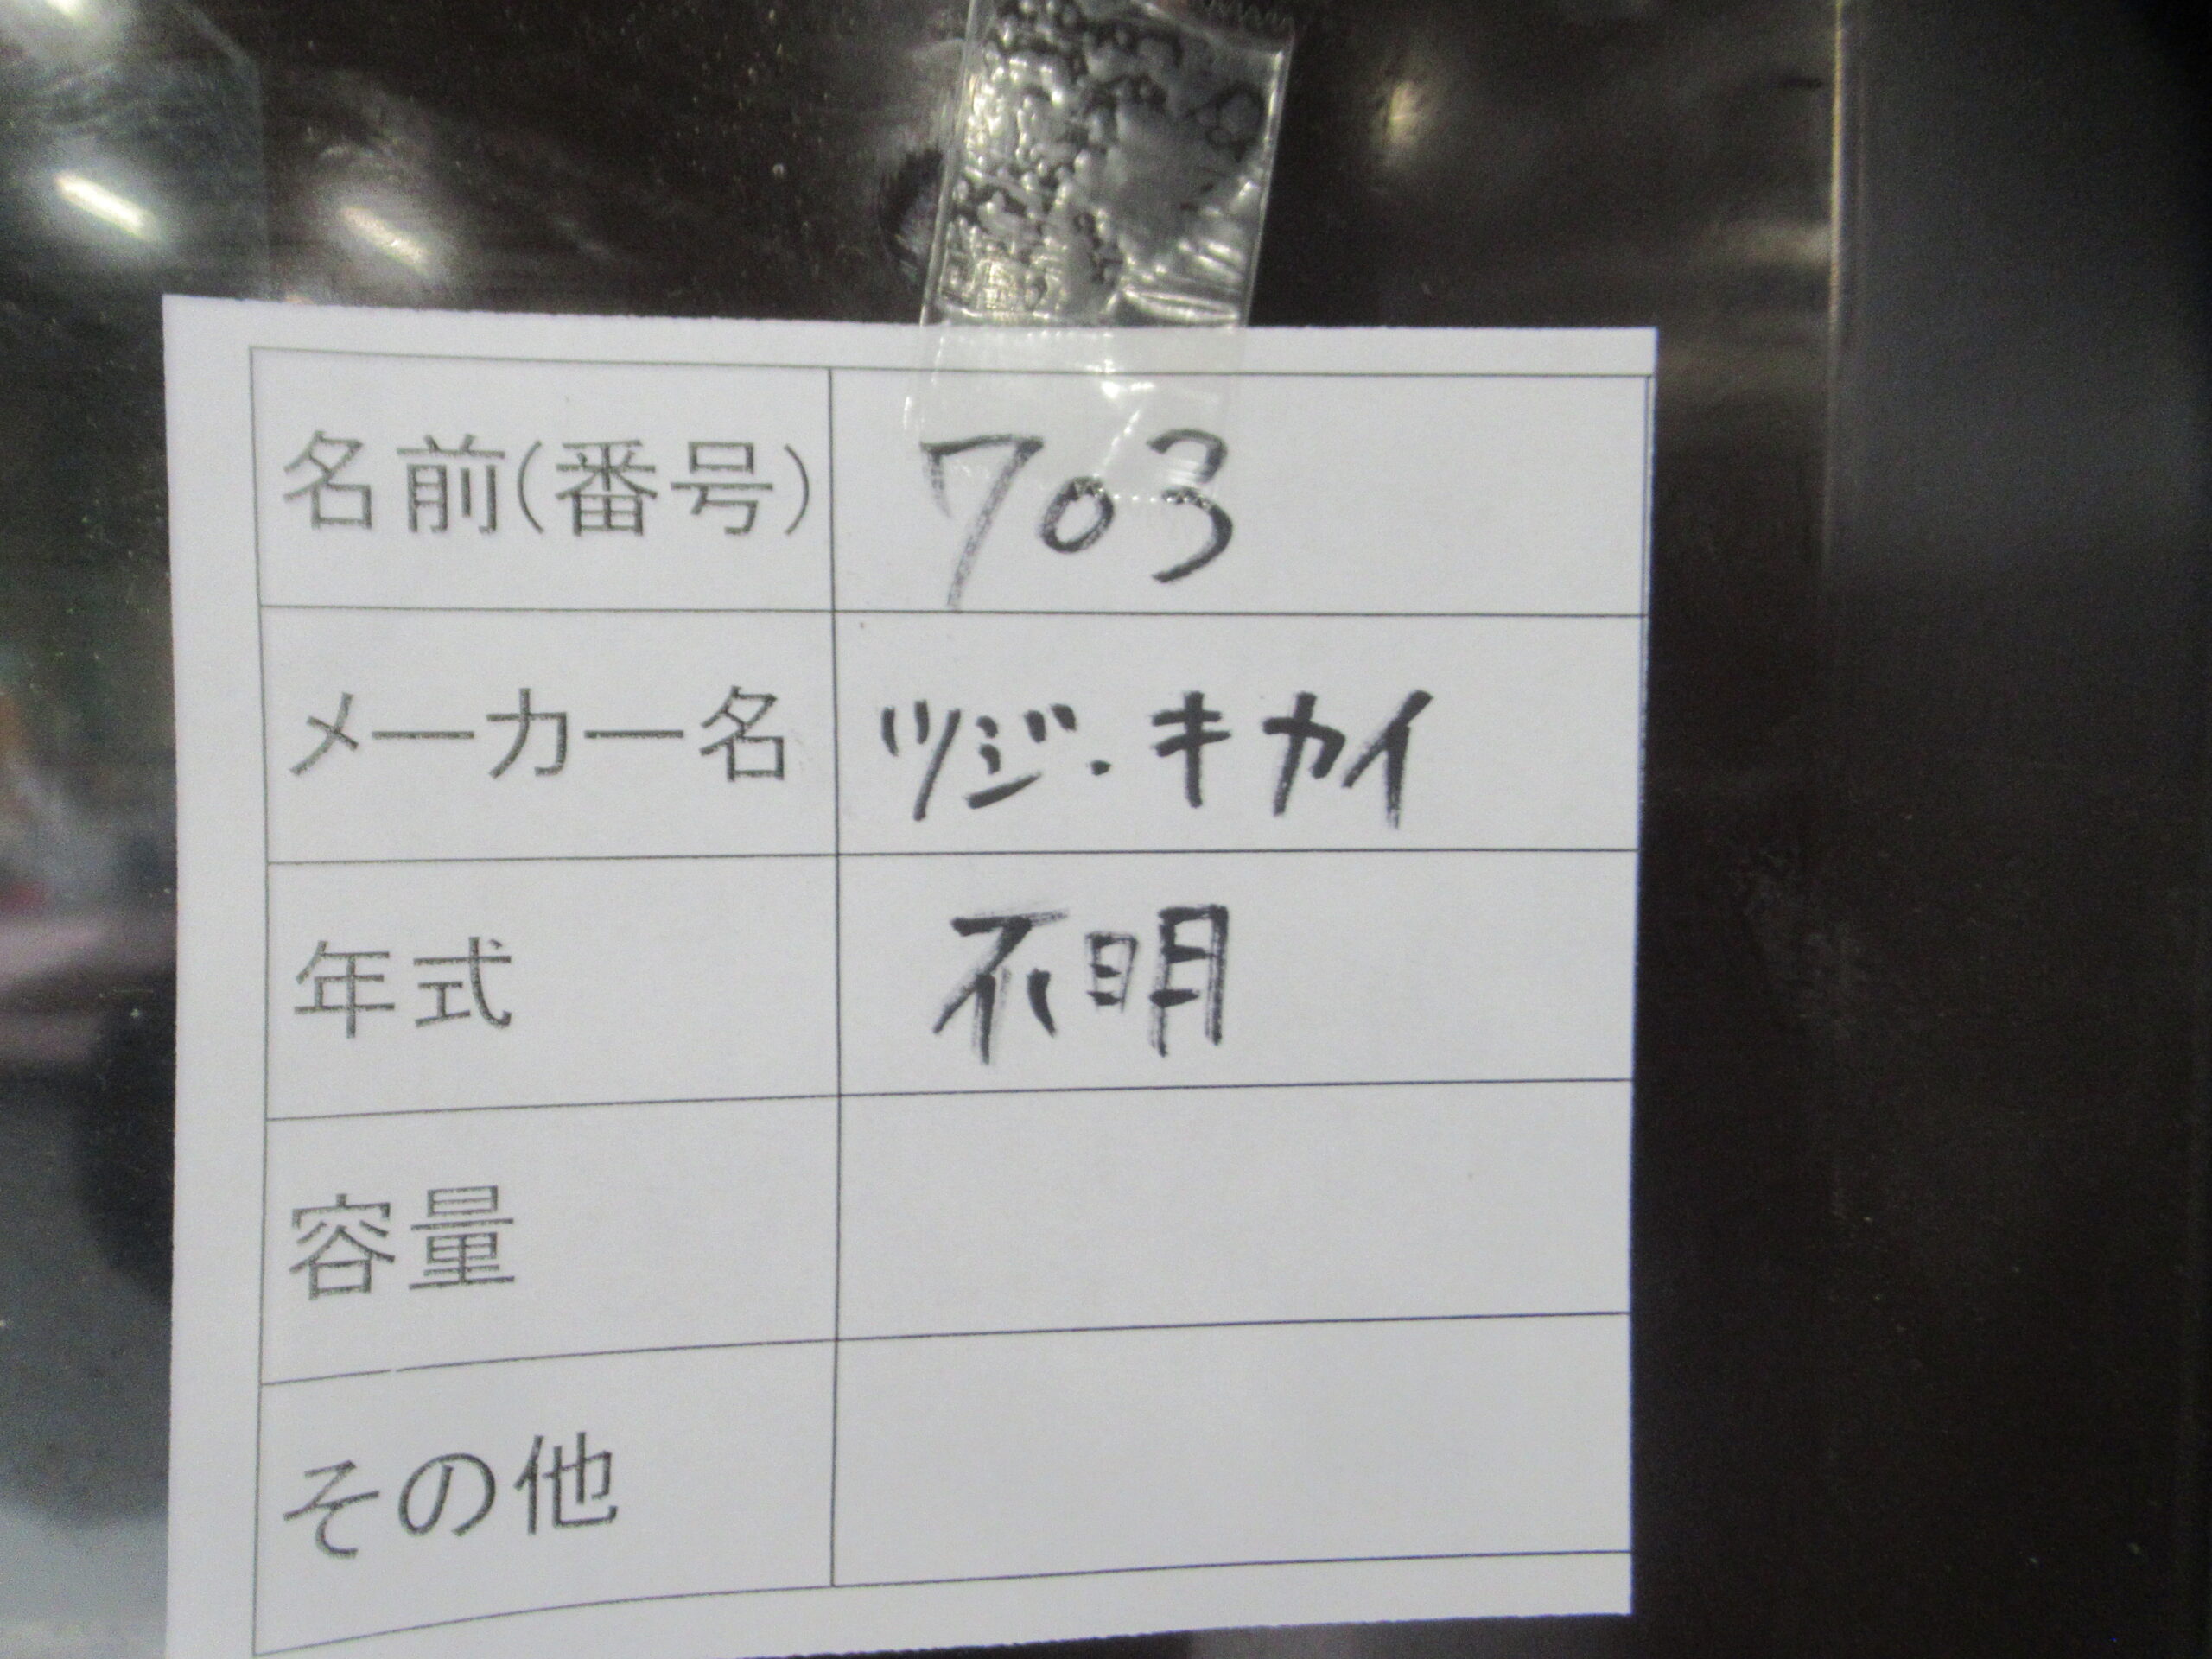 名前(番号) 703
メーカー名 ツジ・キカイ
年式 不明
容量
その他